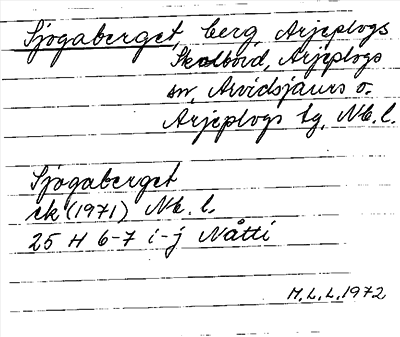 Sjogaberget, berg, Arjeplogs
Skalbovd, Arjeplogs
sn, Arvidsjaurs o.
Arjeplogs tg, Nb. l.
Sjogaberget
ek (1971) Nb. l.
25 H 6-7 i-j Nåtti
M.L.L. 1972